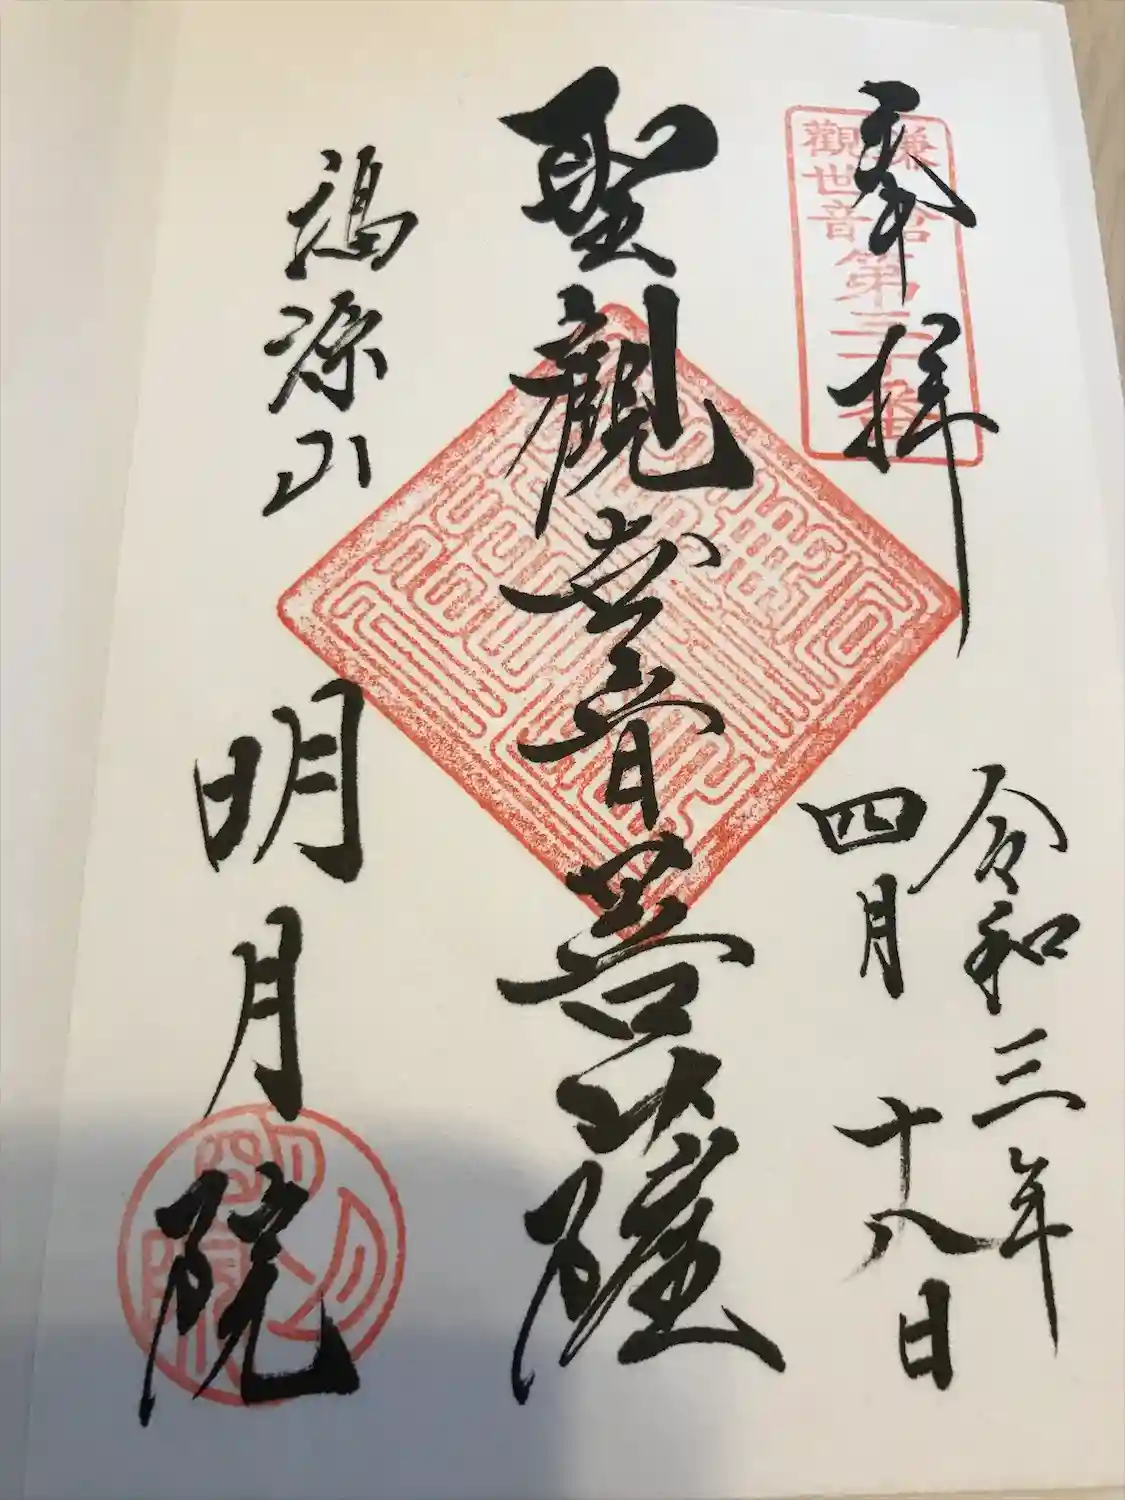 奉拝
鎌倉
観世音
第三十番
令和三年
四月十八日
聖観世音菩薩
福源山
明月院